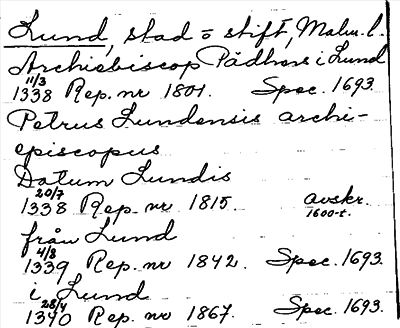 Lund, stad o stift, Malm. l.
Archiebiscop Pädhers i Lund
11/3
1338 Rep. nr 1801. Spec. 1693.
Petrus Lundensis archi-
episcopus
Datum Lundis
20/7
1338 Rep. nr 1815. avskr.
1600-t.
från Lund
4/8
1339 Rep. nr 1842. Spec. 1693.
i Lund
28/4
1340 Rep. nr 1867. Spec. 1693.